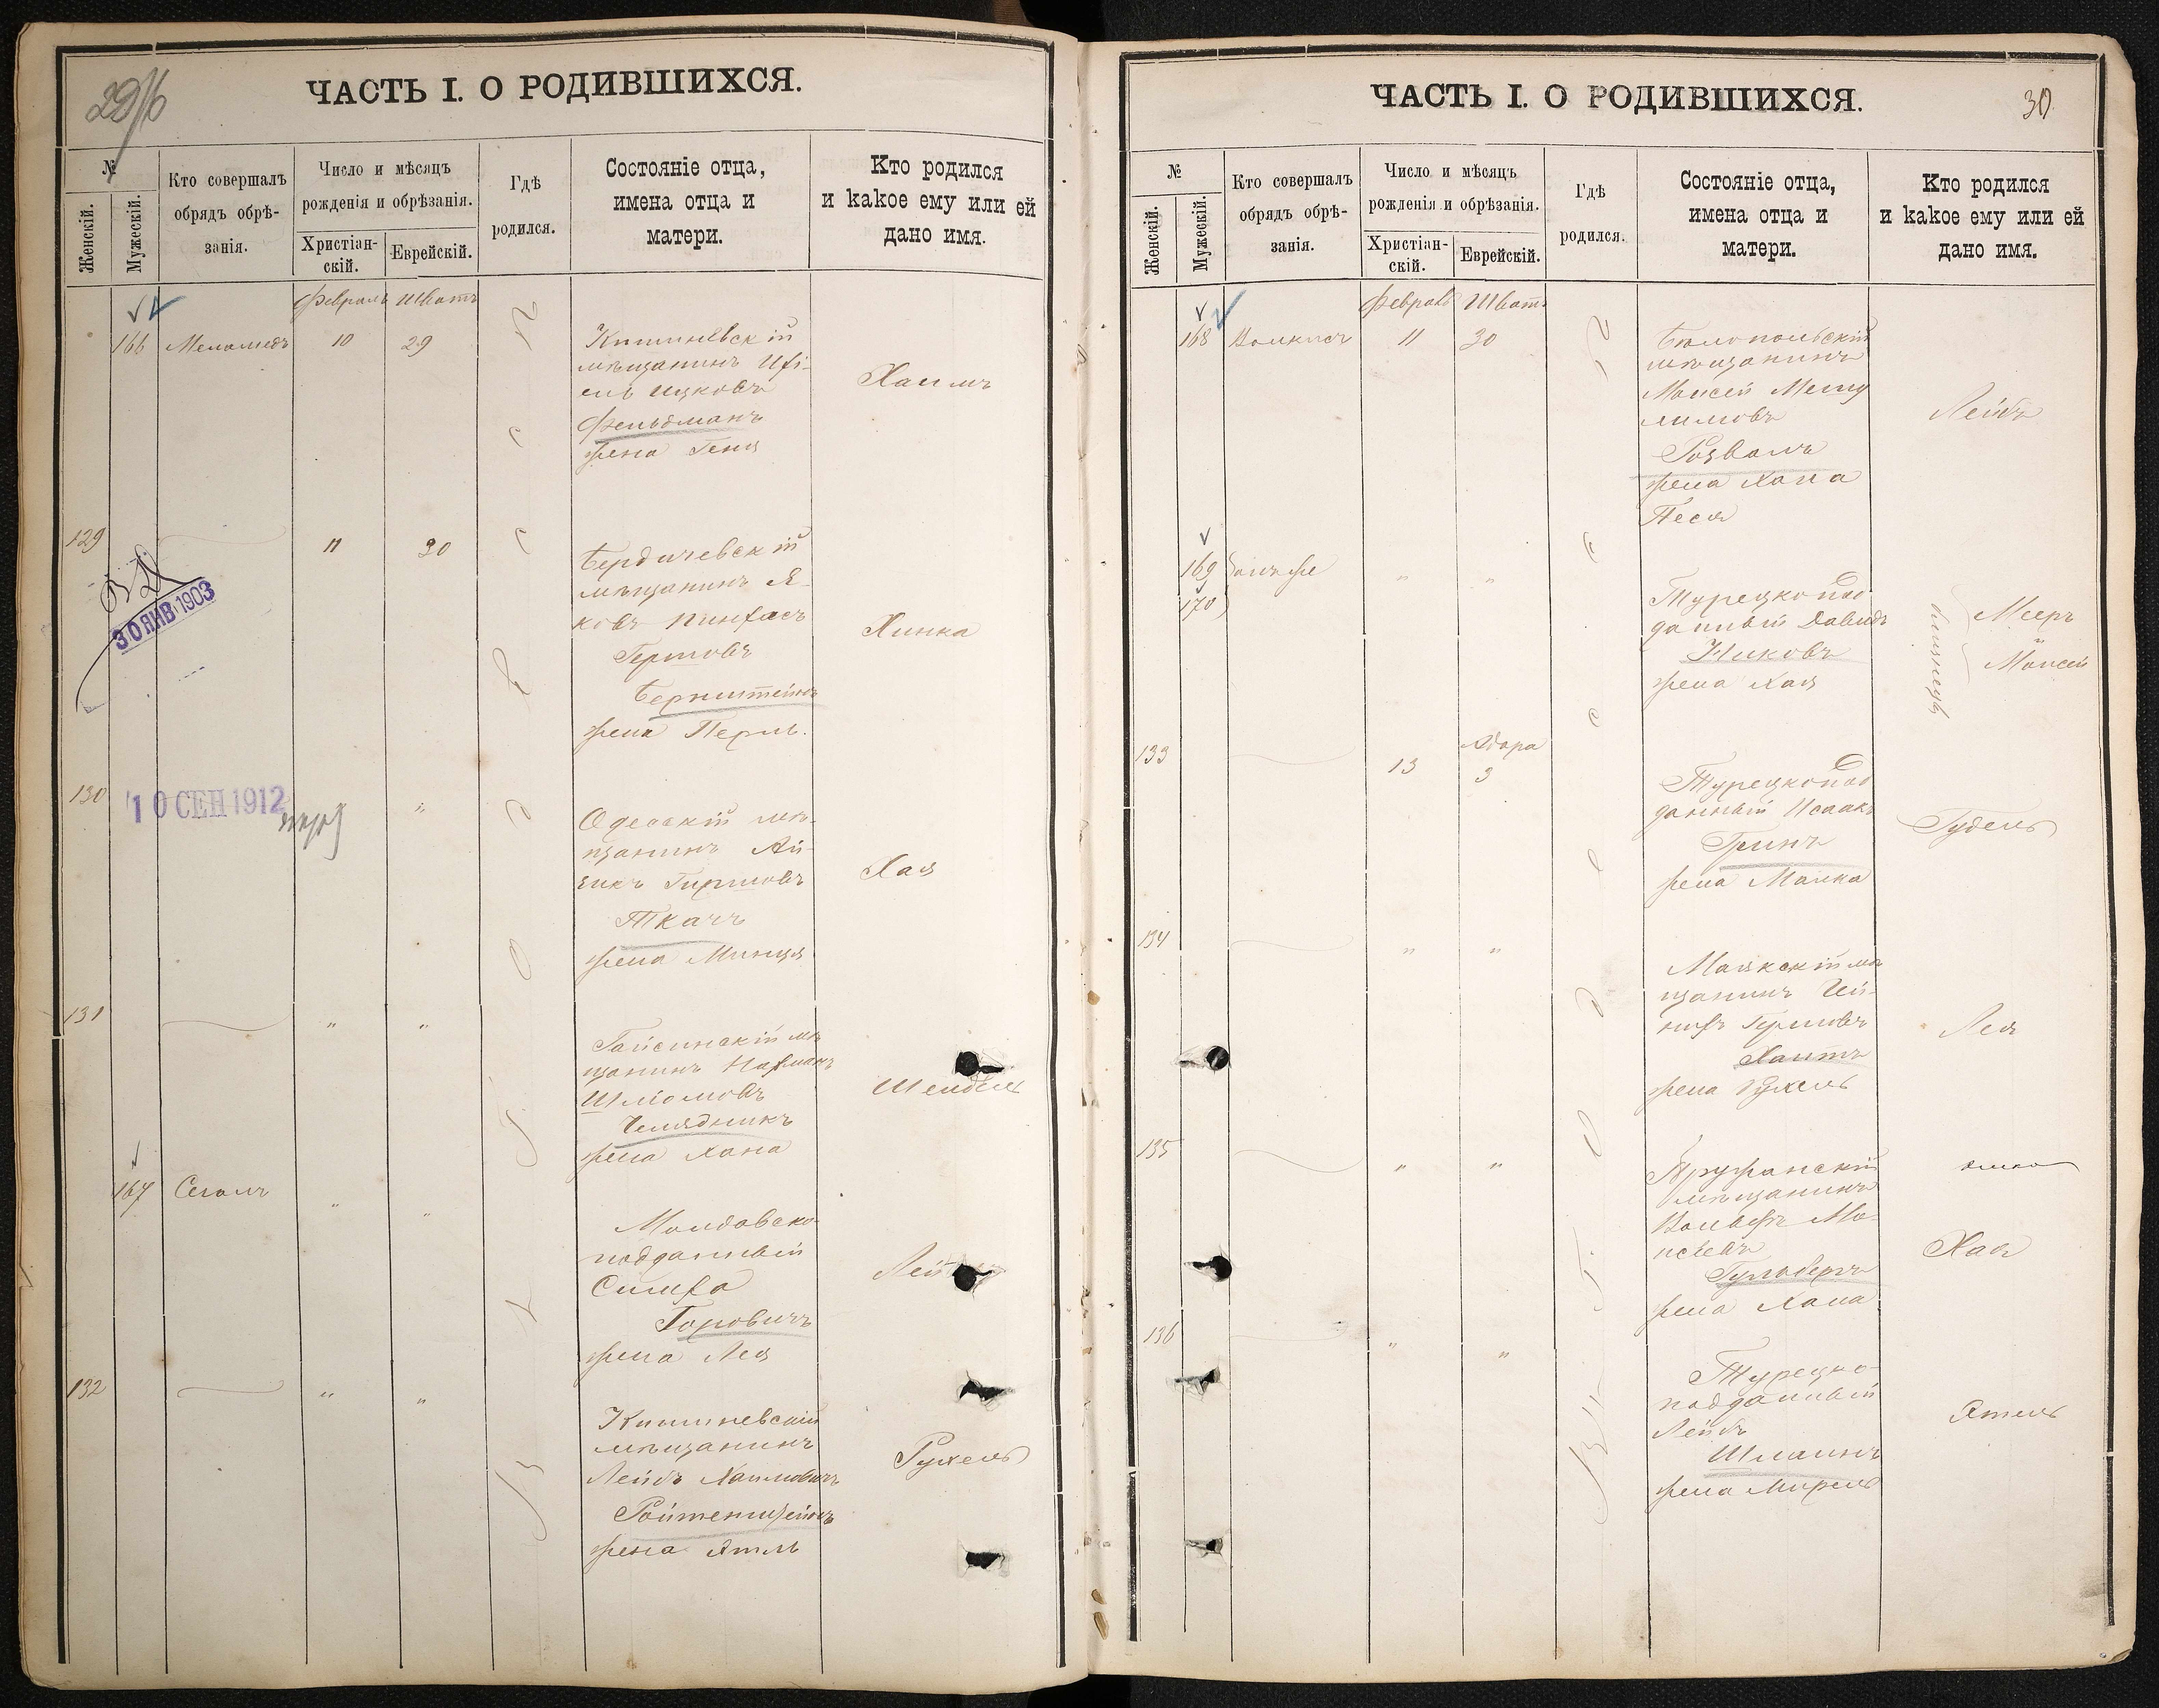 29/б
ЧАСТЬ I. О РОДИВШИХСЯ.
№
Женскій.
Мужескій.
Кто совершалъ
обрядъ обрѣ-
занія.
Число и мѣсяцъ
рожденія и обрѣзанія.
Христіан-
скій.
Еврейскій.
Гдѣ
родился.
Состояніе отца,
имена отца и
матери.
Кто родился
и какое ему или ей
дано имя.
Февраль Шватъ
166 Меламедъ 10 29
Кишиневскій
мѣщанинъ
ель Ицковъ
Фельдманъ
жена Геня
Хаимъ
129 11 30
Бердичевскій
мѣщанинъ Я-
ковъ Пинхасъ
Гершовъ
Бернштейнъ
жена Перль.
Хинка
30 ЯНВ 1903
130 " "
10 СЕН 1912
Одесскій мѣ-
щанинъ Ай-
зикъ Гиршовъ
Ткачъ
жена Минця
Хая
131 " "
Гайсинскій мѣ
щанинъ Нахманъ
Шліомовъ
Челядникъ
жена Хана
Шейндель
167 Сегалъ " "
Молдавско-
подданный
Симха
Горовичъ
жена Лея
132 " "
Кишиневскій
мѣщанинъ
Лейбъ Хаимовичъ
Ройтеншейнъ
жена Этль
Рухель
Въ г. Одессѣ
30
ЧАСТЬ I. О РОДИВШИХСЯ.
№
Женскій.
Мужескій.
Кто совершалъ
обрядъ обрѣ-
занія.
Число и мѣсяцъ
рожденія и обрѣзанія.
Христіан-
скій.
Еврейскій.
Гдѣ
родился.
Состояніе отца,
имена отца и
матери.
Кто родился
и какое ему или ей
дано имя.
Февраль Шватъ
168 Волкисъ 11 30
Бѣлопольскій
мѣщанинъ
Моисей Мешу
лимовъ
Гозвалъ
жена Хана
Песя
Лейбъ
169 онъ же " "
170
Турецкопод
данный Давидъ
Ицковъ
жена Хая
близнецы
Мееръ
Моисей
133 13 Адара
3
Турецкопод
данный Исаакъ
Гринъ
жена Малка
Гудель
134 " "
Маякскій мѣ
щанинъ
Гершовъ
Хаитъ
жена Рухель
Лея
135 " "
Пружанскій
мѣщанинъ
Вольфъ Мо-
исеевъ
Гульбергъ
жена Хана
Хая
136 " "
Турецко-
подданный
Лейбъ
Шмаинъ
жена Мирель
Этель
Въ г. Одессѣ